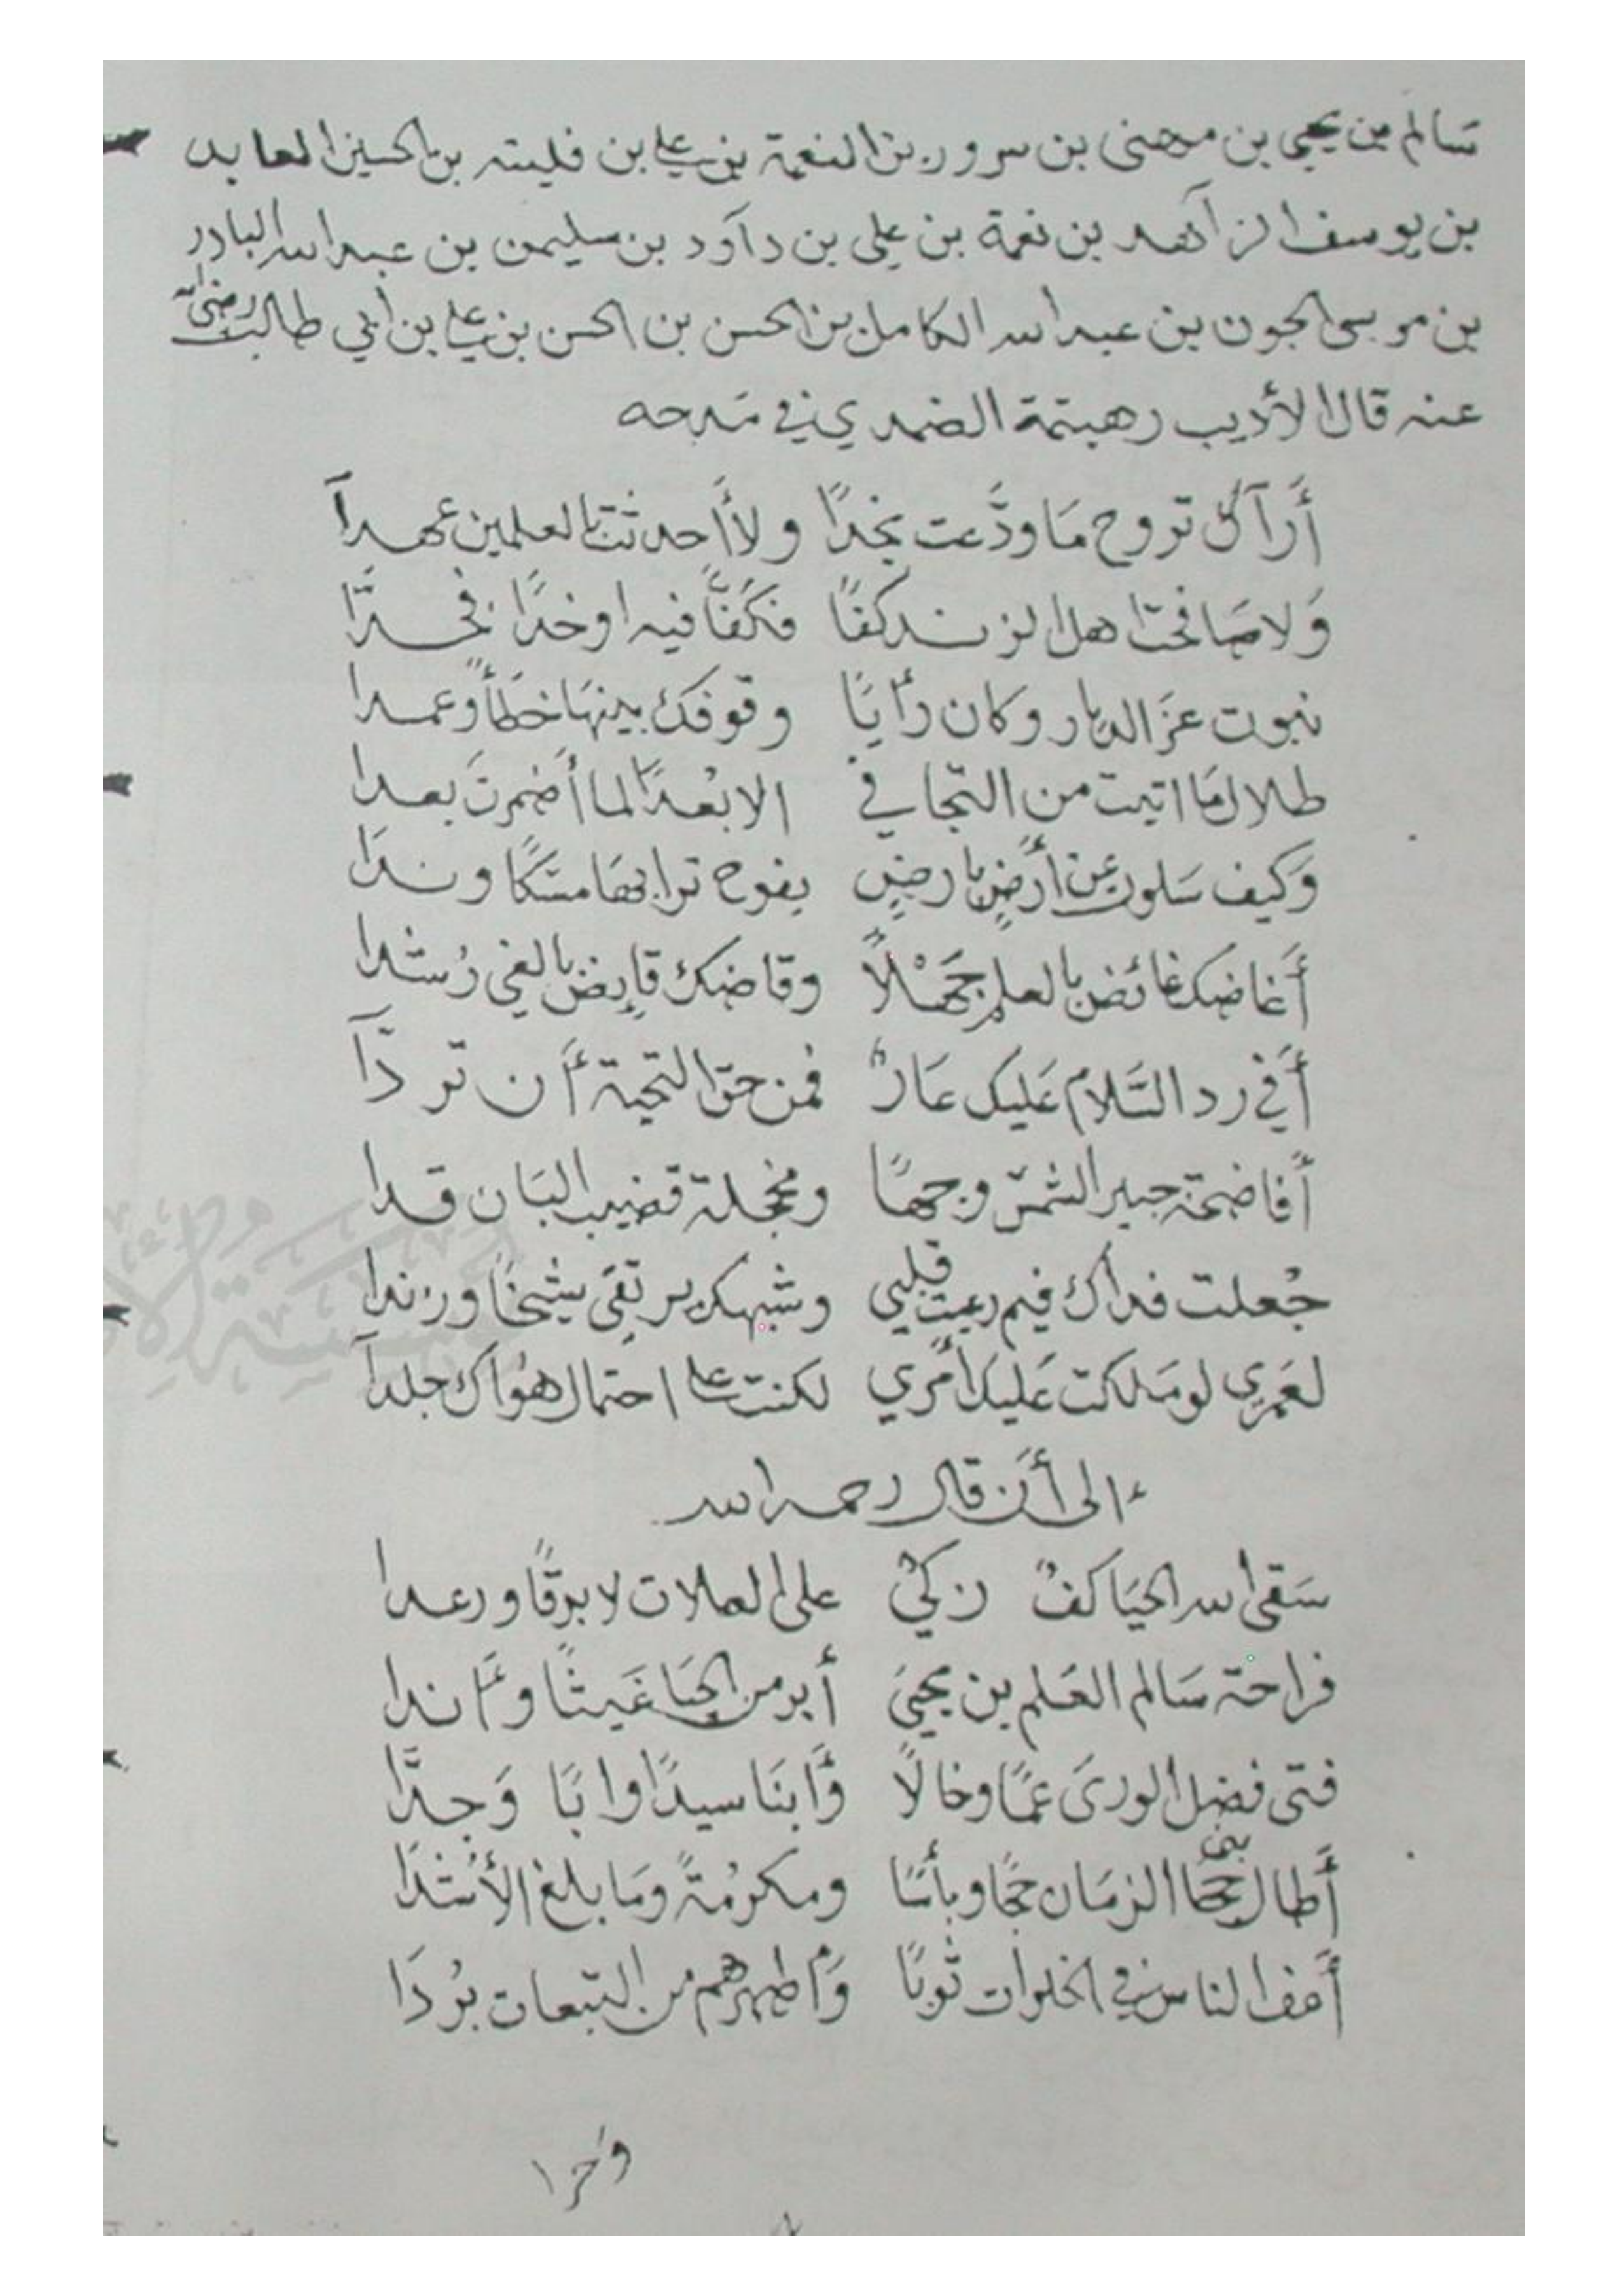 سَالم بن يحيي بن مهنى بن سرور بن النعمة بن علي بن فليته بن الحسين العابد
بن يوسف الزاهد بن نعمة بن علي بن داود بن سليمن بن عبد الله البادر
بن موسى الجون بن عبد الله الكامل بن الحسن بن الحسن بن علي بن ابي طالب رضي الله
عنه قال الأديب رهيتمة الضمدي في مَدحه
أَرآك تروح مَا ودَّعت نجدًا ولا أَحدثت بالعلمين عهدآ
وَلا صَافحت هذا الزند كفًا فكَفًّا فيه اوخدًا فخدّا
نبوت عَن الديار وكان رأيًا وقوفك بينهَا خطأً وعمدا
طلالك مَا اتيت من التجافي الا بُعْدًا لما أضمرتَ بعدا
وَكيف سَلوت عن أرضٍ بارضٍ يفوح ترابهَا مسكًا وندَا
أَغاضك غائض بالعلم جَهْلاً وقاضك قايض بالغي رُشدا
أَفي رد السَّلام عَليك عَارٌ فمن حق التحية أَن تردّآ
أَفاضحة جبير الشمس وجهًا ومخجلة قضيب البَان قدا
جُعلت فداك فيم رعيت قلبي وشبهك يرتقي شيخًا ورندا
لعَمري لومَلكت عَليك أمري لكنت على احتمال هوَاك جلدآ
الى أَن قال رحمه الله
سَقى الله الحيَا كفٌ زكيٌ على العلات لا برقًا ورعدا
فراحة سَالم العَلم بن يحيىَ أبر من الحيَا غَيثًا وأَندا
فتى فضل الورىَ عمًا وخالاً وَأَبنَا سيدًا وابًا وَجدًّا
أَطال بني الزمَان حجًا وبأسًا ومكرُمةً ومَا بلغ الأَشدَا
أَعف الناس في الخلوات ثوبًا وَأطهرهم من التبعات بُردَا
وآخرا